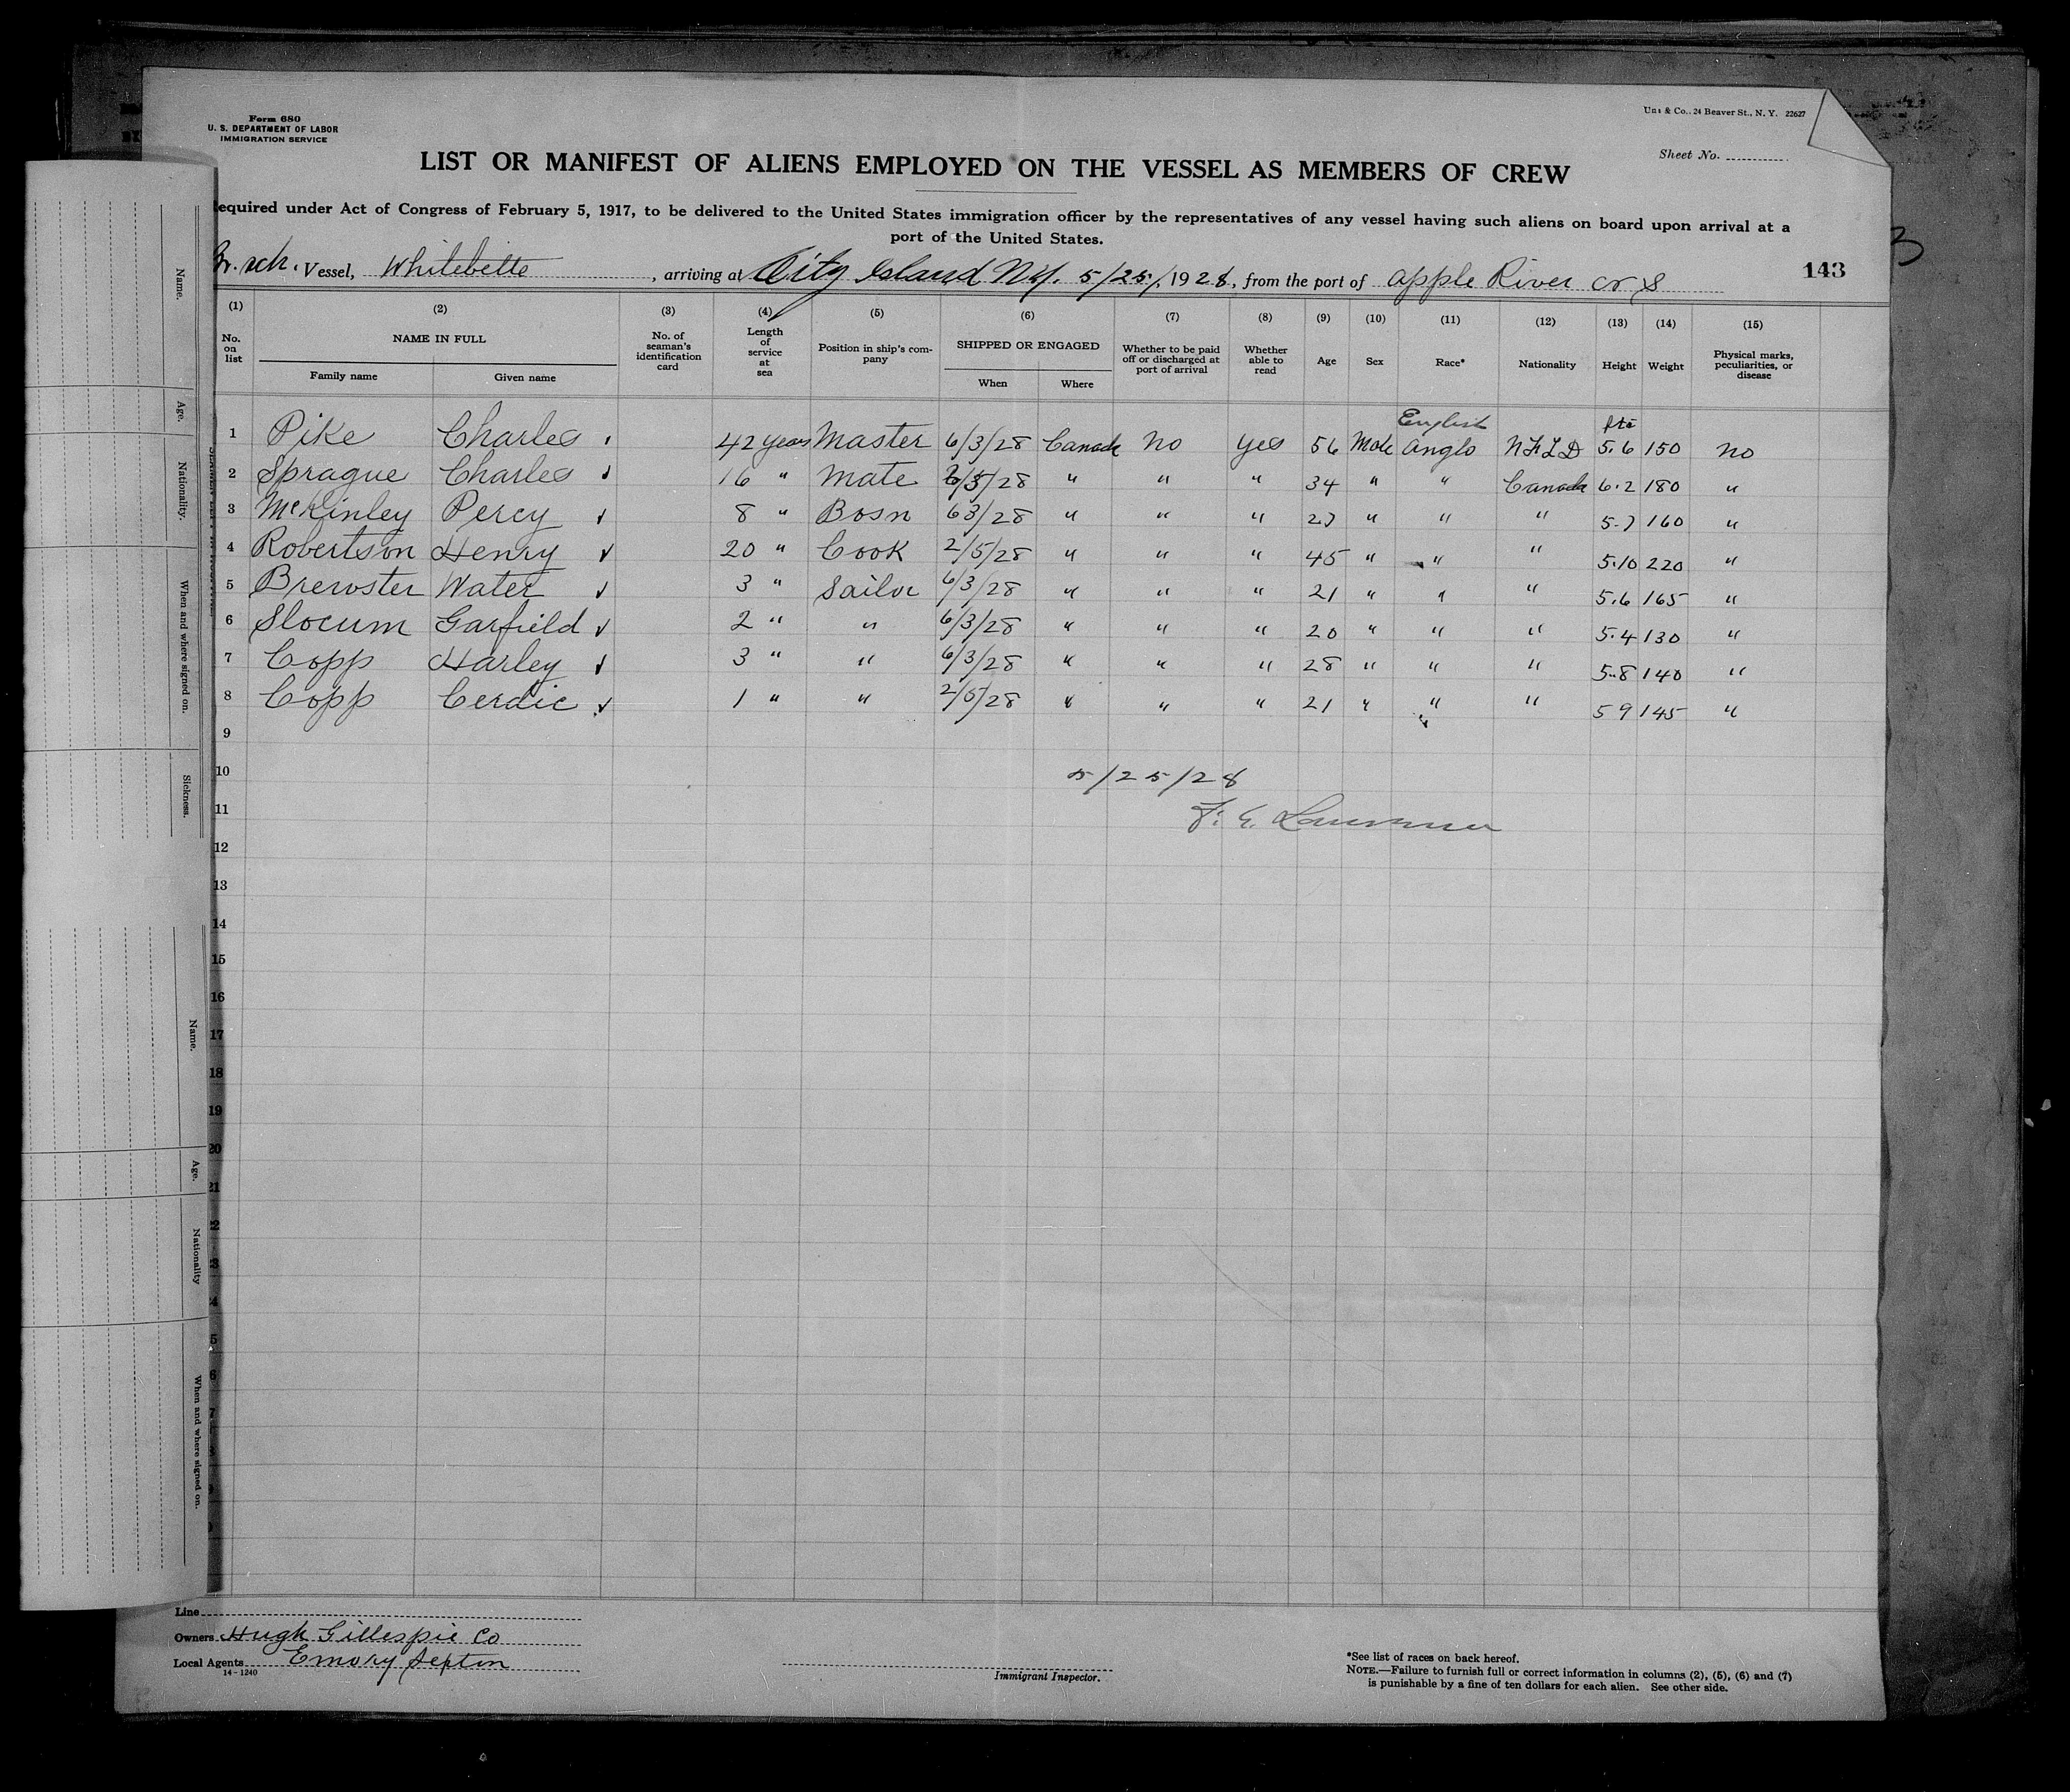 Form 680
U. S. DEPARTMENT OF LABOR
IMMIGRATION SERVICE
& Co., 24 Beaver St., N. Y. 22627
Sheet No.
LIST OR MANIFEST OF ALIENS EMPLOYED ON THE VESSEL AS MEMBERS OF CREW
equired under Act of Congress of February 5, 1917, to be delivered to the United States immigration officer by the representatives of any vessel having such aliens on board upon arrival at a
port of the United States.
sch. Vessel, Whitebelle, arriving at City Island N.Y. 5/25/, 1928, from the port of apple River
143
(1) (2) (3) (4) (5) (6) (7) (8) (9) (10) (11) (12) (13) (14) (15)
No. on list NAME IN FULL Family name Given name No. of seaman's identification card Length of service at sea Position in ship's company SHIPPED OR ENGAGED When Where Whether to be paid off or discharged at port of arrival Whether able to read Age Sex Race* Nationality Height Weight Physical marks, peculiarities, or disease
English fts
1 Pike Charles 42 years Master 6/3/28 Canada No yes 56 Male Anglo NFLD 5.6 150 no
2 Sprague Charles 16 " Mate 6/3/28 " " " 34 " " Canada 6.2 180 "
3 McKinley Percy 8 " Bosn 6 3/28 " " " 27 " " " 5.7 160 "
4 Robertson Henry 20 " Cook 2/5/28 " " " 45 " " " 5.10 220 "
5 Brewster Water 3 " Sailor 6/3/28 " " " 21 " " " 5.6 165 "
6 Slocum Garfield 2 " " 6/3/28 " " " 20 " " " 5.4 130 "
7 Copp Harley 3 " " 6/3/28 " " " 28 " " " 5.8 140 "
8 Copp Cerdic 1 " " 2/5/28 " " " 21 " " " 5 9 145 "
9
10 5/25/28
11 F. E.
12
13
14
15
16
17
18
19
20
Name.
Age.
Nationality.
When and where signed on.
Sickness.
Name.
Age.
Nationality
When and where signed on.
Line
Owners Hugh Gillespie Co
Local Agents Emory Sexton
14-1240
Immigrant Inspector.
*See list of races on back hereof.
NOTE.—Failure to furnish full or correct information in columns (2), (5), (6) and (7)
is punishable by a fine of ten dollars for each alien. See other side.